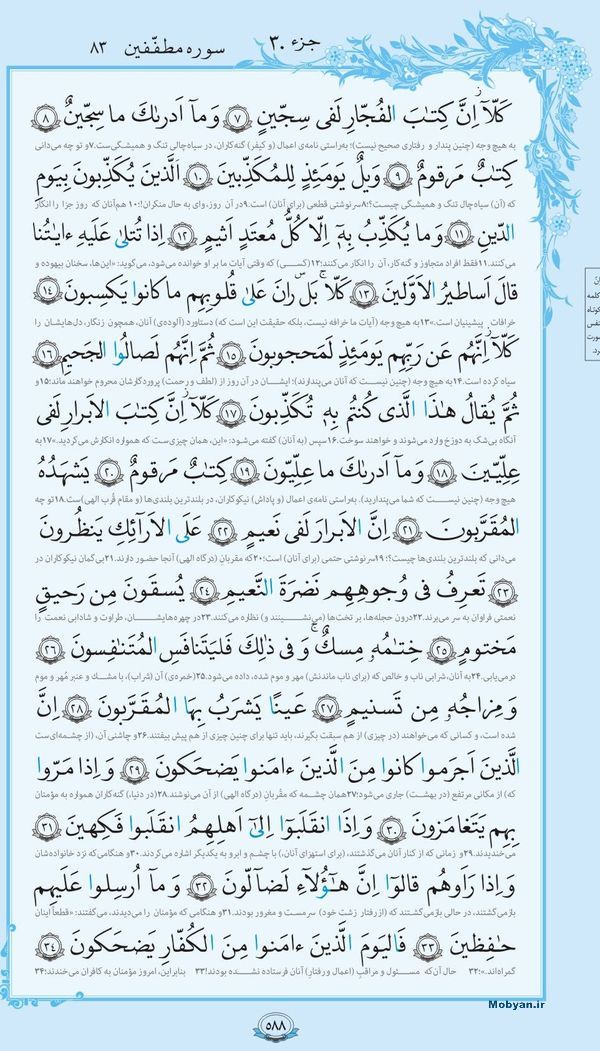 جزء ۳۰
سوره مطفّفین ۸۳
كَلّآ اِنَّ كِتٰبَ الفُجّارِ لَفی سِجّینٍ ﴿۷﴾ وَ مآ اَدرىٰكَ ما سِجّینٌ ﴿۸﴾
به هیچ وجه (چنین پندار و رفتاری صحیح نیست)؛ به‌راستی نامه‌ی اعمال (و کیفر) گنه‌کاران، در سیاه‌چالی تنگ و همیشگی‌ست.۷ و تو چه می‌دانی
كِتٰبٌ مَرقومٌ ﴿۹﴾ وَیلٌ یَومَئِذٍ لِلمُكَذِّبینَ ﴿۱۰﴾ اَلَّذینَ یُكَذِّبونَ بِیَومِ
که (آن) سیاه‌چال تنگ و همیشگی چیست؟!۸ سرنوشتی قطعی (برای آنان) است؛۹ در آن روز، وای به حال منکران!۱۰ هم‌آنان که روز جزا را انکار
الدّینِ ﴿۱۱﴾ وَ ما یُكَذِّبُ بِهٖٓ اِلّا كُلُّ مُعتَدٍ اَثیمٍ ﴿۱۲﴾ اِذا تُتلىٰ عَلَیهِ ءایٰتُنا
می‌کنند.۱۱ فقط افراد متجاوز و گنه‌کار، آن را انکار می‌کنند؛۱۲ (کسی) که وقتی آیات ما بر او خوانده می‌شود، می‌گوید: «این‌ها، سخنان بیهوده و
قالَ اَساطیرُ الاَوَّلینَ ﴿۱۳﴾ كَلّا بَل رانَ عَلىٰ قُلوبِهِم ما كانوا یَكسِبونَ ﴿۱۴﴾
خرافات پیشینیان است.»۱۳ به هیچ وجه (آیات ما خرافه نیست، بلکه حقیقت این است که) دستاورد (آلوده‌ی) آنان، همچون زنگار، دل‌هایشان را
كَلّآ اِنَّهُم عَن رَبِّهِم یَومَئِذٍ لَمَحجوبونَ ﴿۱۵﴾ ثُمَّ اِنَّهُم لَصالُوا الجَحیمِ ﴿۱۶﴾
سیاه کرده است.۱۴ به هیچ وجه (چنین نیست که آنان می‌پندارند)؛ ایشان در آن روز از (لطف و رحمت) پروردگارشان محروم خواهند ماند؛۱۵ و
ثُمَّ یُقالُ هٰذَا الَّذی كُنتُم بِهٖ تُكَذِّبونَ ﴿۱۷﴾ كَلّآ اِنَّ كِتٰبَ الاَبرارِ لَفی
آنگاه بی‌شک به دوزخ وارد می‌شوند و خواهند سوخت.۱۶ سپس (به آنان) گفته می‌شود: «این، همان چیزی‌ست که همواره انکارش می‌کردید.»۱۷ به
عِلِّیّینَ ﴿۱۸﴾ وَ مآ اَدرىٰكَ ما عِلِّیّونَ ﴿۱۹﴾ كِتٰبٌ مَرقومٌ ﴿۲۰﴾ یَشهَدُهُ
هیچ وجه (چنین نیست که شما می‌پندارید). به‌راستی نامه‌ی اعمال (و پاداش) نیکوکاران، در بلندترین بلندی‌ها (و مقام قُرب الهی) است.۱۸ تو چه
المُقَرَّبونَ ﴿۲۱﴾ اِنَّ الاَبرارَ لَفی نَعیمٍ ﴿۲۲﴾ عَلَی الاَرآئِكِ یَنظُرونَ
می‌دانی که بلندترین بلندی‌ها چیست؟!۱۹ سرنوشتی حتمی (برای آنان) است؛۲۰ که مقربانِ (درگاه الهی) آنجا حضور دارند.۲۱ بی‌گمان نیکوکاران در
﴿۲۳﴾ تَعرِفُ فی وُجوهِهِم نَضرَةَ النَّعیمِ ﴿۲۴﴾ یُسقَونَ مِن رَحیقٍ
نعمتی فراوان به سر می‌برند.۲۲ درون حجله‌ها، بر تخت‌ها (می‌نشینند و) نظاره می‌کنند.۲۳ در چهره‌هایشان، طراوت و شادابی نعمت را
مَختومٍ ﴿۲۵﴾ خِتٰمُهٗ مِسكٌ وَ فی ذٰلِكَ فَلیَتَنافَسِ المُتَنافِسونَ ﴿۲۶﴾
درمی‌یابی.۲۴ به آنان، شرابی ناب و خالص که (برای ناب ماندنش) مهر و موم شده، داده می‌شود.۲۵ (خمره‌ی) آن (شراب)، با مشك و عنبر مُهر و موم
وَ مِزاجُهٗ مِن تَسنیمٍ ﴿۲۷﴾ عَینًا یَشرَبُ بِهَا المُقَرَّبونَ ﴿۲۸﴾ اِنَّ
شده است، و کسانی که می‌خواهند (در چیزی) از هم سبقت بگیرند، باید تنها برای چنین چیزی از هم پیش بیفتند.۲۶ و چاشنی آن، (از چشمه‌ای‌ست
الَّذینَ اَجرَموا كانوا مِنَ الَّذینَ ءامَنوا یَضحَكونَ ﴿۲۹﴾ وَ اِذا مَرّوا
که) از مکانی مرتفع (در بهشت) جاری می‌شود؛۲۷ همان چشمه که مقربانِ (درگاه الهی) از آن می‌نوشند.۲۸ (در دنیا،) گنه‌کاران همواره به مؤمنان
بِهِم یَتَغامَزونَ ﴿۳۰﴾ وَ اِذَا انقَلَبوٓا اِلىٰٓ اَهلِهِمُ انقَلَبوا فَكِهینَ ﴿۳۱﴾
می‌خندیدند.۲۹ و زمانی که از کنار آنان می‌گذشتند، (برای استهزای آنان،) با چشم و ابرو به یکدیگر اشاره می‌کردند.۳۰ و هنگامی که نزد خانواده‌شان
وَ اِذا رَاَوهُم قالوٓا اِنَّ هٰٓؤُلآءِ لَضآلّونَ ﴿۳۲﴾ وَ مآ اُرسِلوا عَلَیهِم
بازمی‌گشتند، در حالی بازمی‌گشتند که (از رفتار زشت خود) سرمست و مغرور بودند.۳۱ و هنگامی که مؤمنان را می‌دیدند، می‌گفتند: «قطعاً اینان
حٰفِظینَ ﴿۳۳﴾ فَالیَومَ الَّذینَ ءامَنوا مِنَ الكُفّارِ یَضحَكونَ ﴿۳۴﴾
گمراه‌اند.»؛۳۲ حال آن‌که مسئول و مراقبِ (اعمال و رفتارِ) آنان فرستاده نشده بودند!۳۳ بنابراین، امروز مؤمنان به کافران می‌خندند؛۳۴
۵۸۸
Mobyan.ir